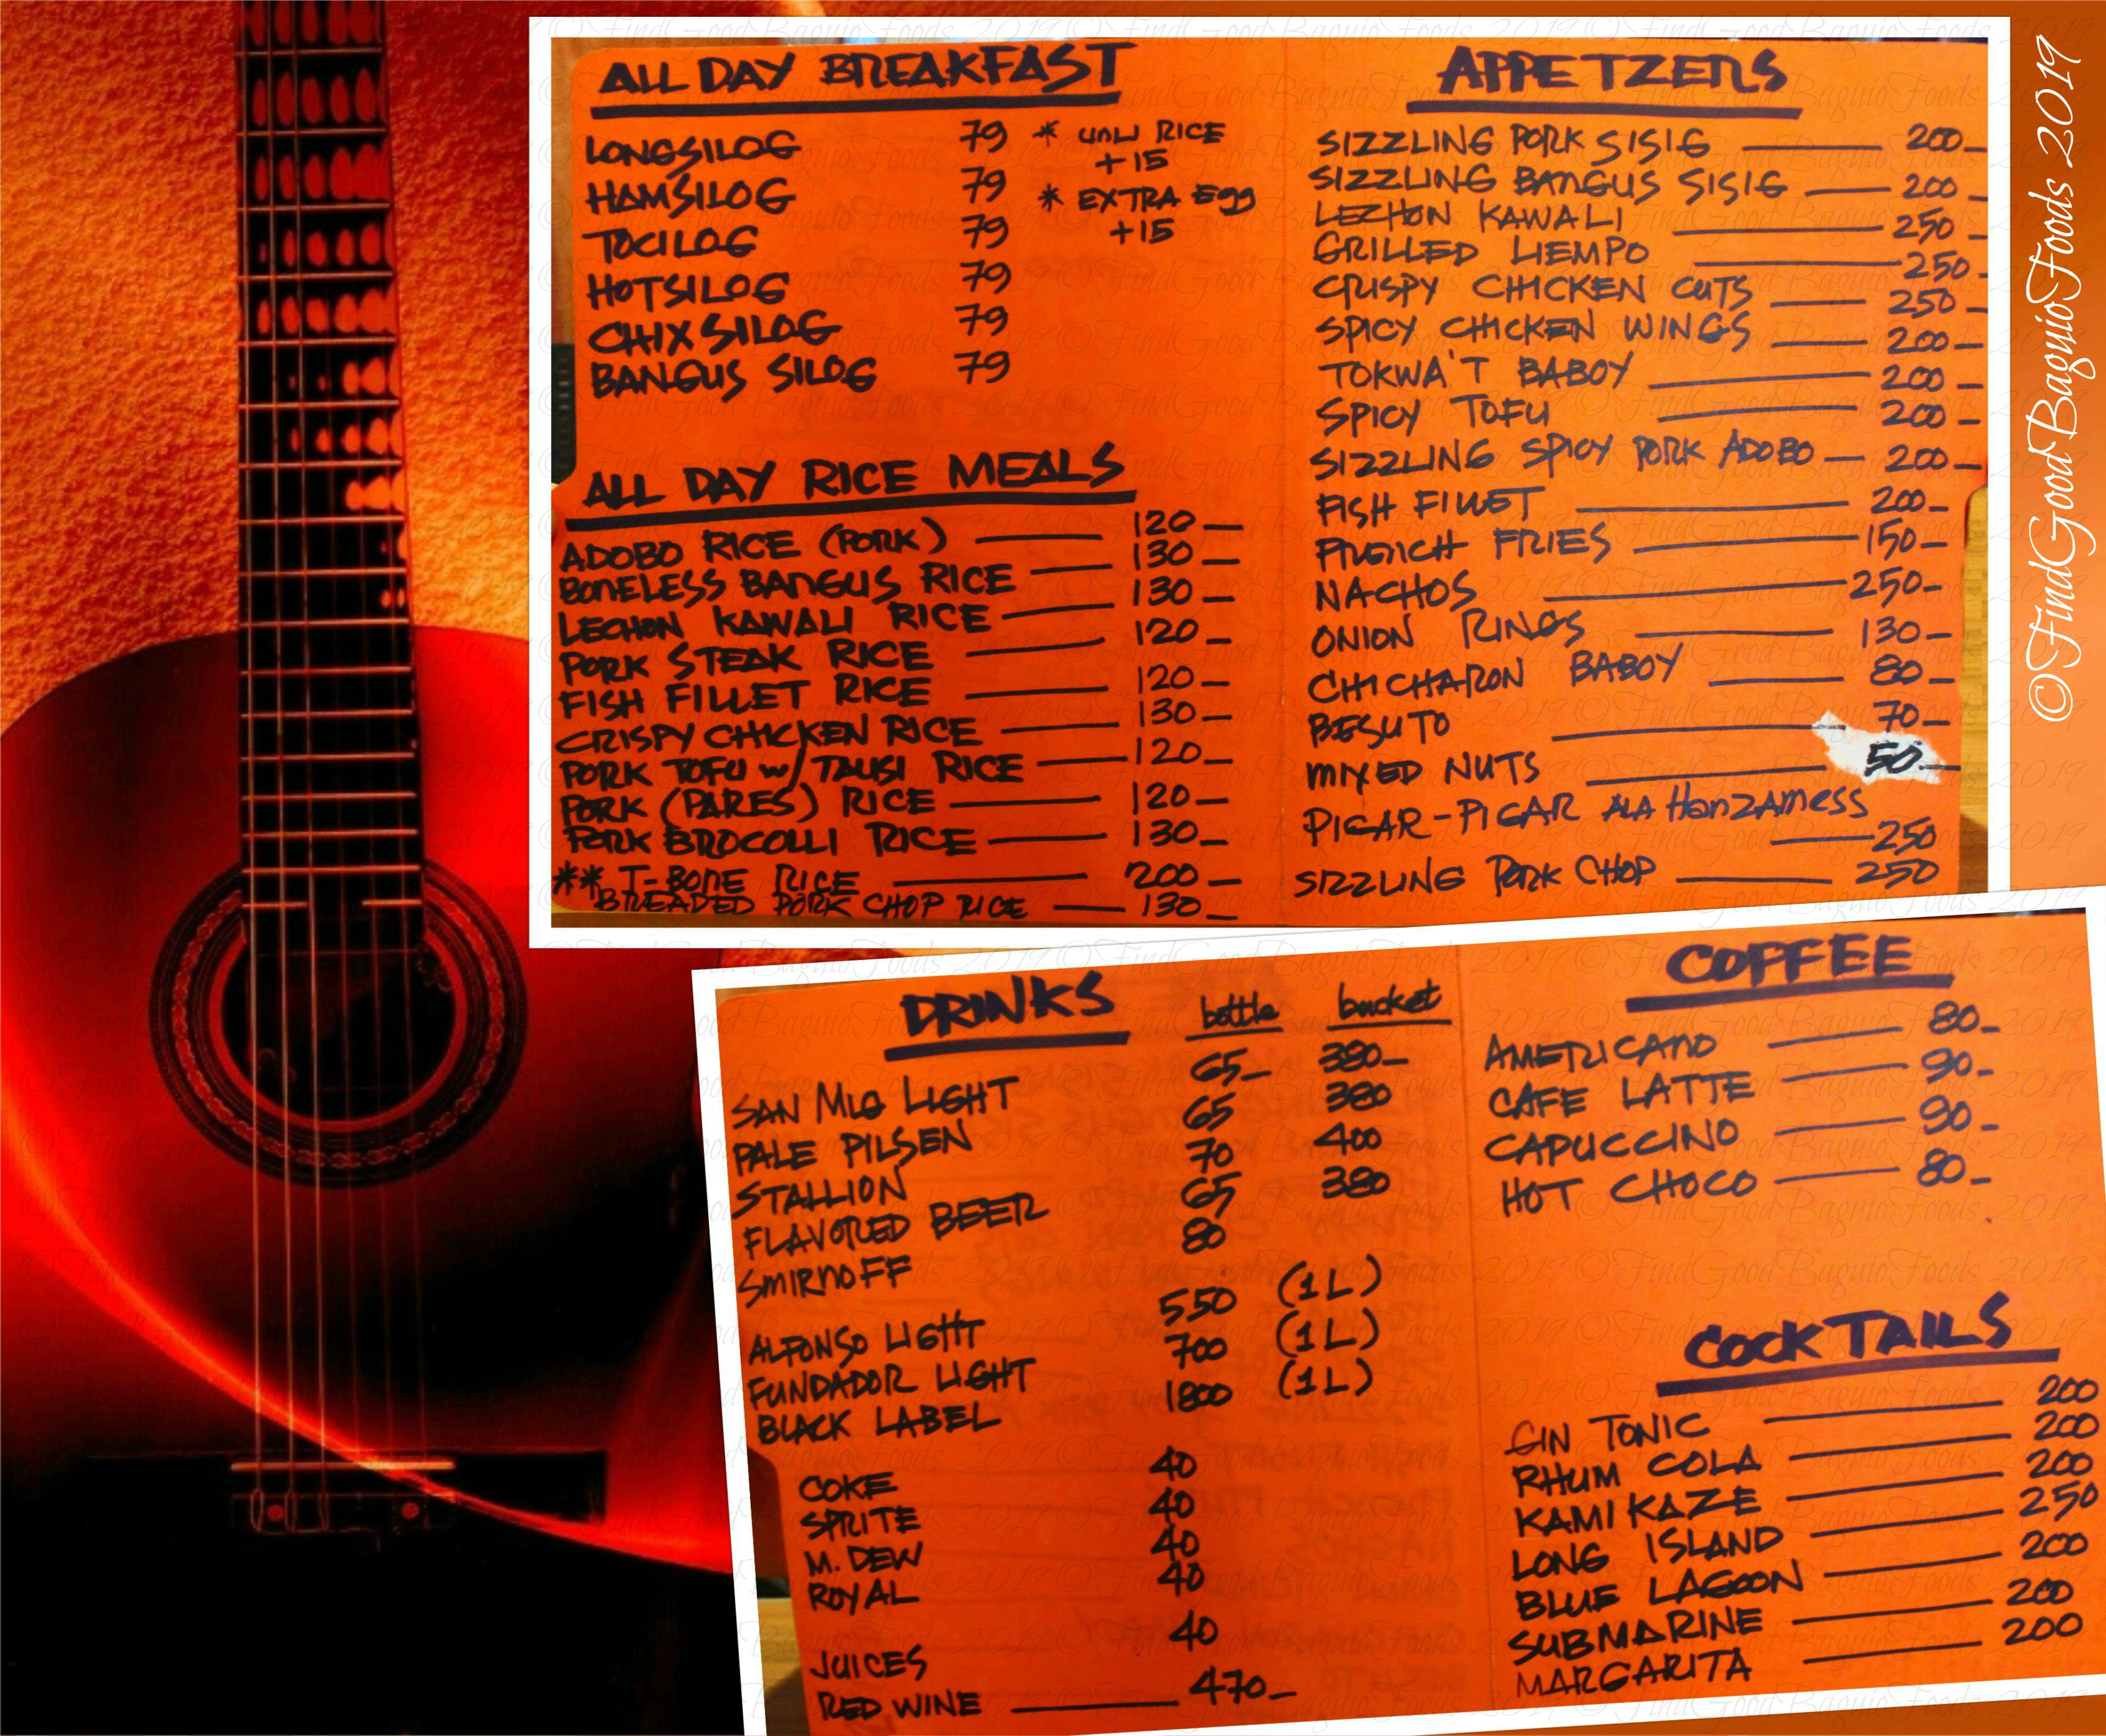 ALL DAY BREAKFAST
LONGSILOG 79 * UNLI RICE +15
HAMSILOG 79 * EXTRA Egg +15
TOCILOG 79
HOTSILOG 79
CHIX SILOG 79
BANGUS SILOG 79
ALL DAY RICE MEALS
ADOBO RICE (PORK) 120
BONELESS BANGUS RICE 130
LECHON KAWALI RICE 130
PORK STEAK RICE 120
FISH FILLET RICE 120
CRISPY CHICKEN RICE 130
PORK TOFU w/ TAUSI RICE 120
PORK (PARES) RICE 120
PORK BROCOLLI RICE 130
** T-BONE RICE 200
BREADED PORK CHOP RICE 130
APPETZERS
SIZZLING PORK SISIG 200
SIZZLING BANGUS SISIG 200
LEZHON KAWALI 250
GRILLED LIEMPO 250
CRISPY CHICKEN CUTS 250
SPICY CHICKEN WINGS 200
TOKWA'T BABOY 200
SPICY TOFU 200
SIZZLING SPICY PORK ADOBO 200
FISH FILLET 200
FRENCH FRIES 150
NACHOS 250
ONION RINGS 130
CHICHARON BABOY 80
BESUTO 70
MIXED NUTS 50
PIGAR-PIGAR ALA HanZAMESS 250
SIZZLING PORK CHOP 250
DRINKS bottle bucket
SAN MIG LIGHT 65 380
PALE PILSEN 65 380
STALLION 70 400
FLAVORED BEER 65 380
SMIRNOFF 80
ALFONSO LIGHT 550 (1L)
FUNDADOR LIGHT 700 (1L)
BLACK LABEL 1800 (1L)
COKE 40
SPRITE 40
M. DEW 40
ROYAL 40
JUICES 40
RED WINE 470
COFFEE
AMERICANO 80
CAFE LATTE 90
CAPUCCINO 90
HOT CHOCO 80
COCKTAILS
GIN TONIC 200
RHUM COLA 200
KAMIKAZE 200
LONG ISLAND 250
BLUE LAGOON 200
SUBMARINE 200
MARGARITA 200
©FindGoodBaguioFoods 2019